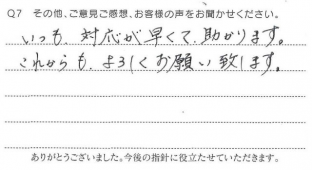 Q7 その他、ご意見ご感想、お客様の声をお聞かせください。
いつも、対応が早くて、助かります。
これからも、よろしくお願い致します。
ありがとうございました。今後の指針に役立たせていただきます。